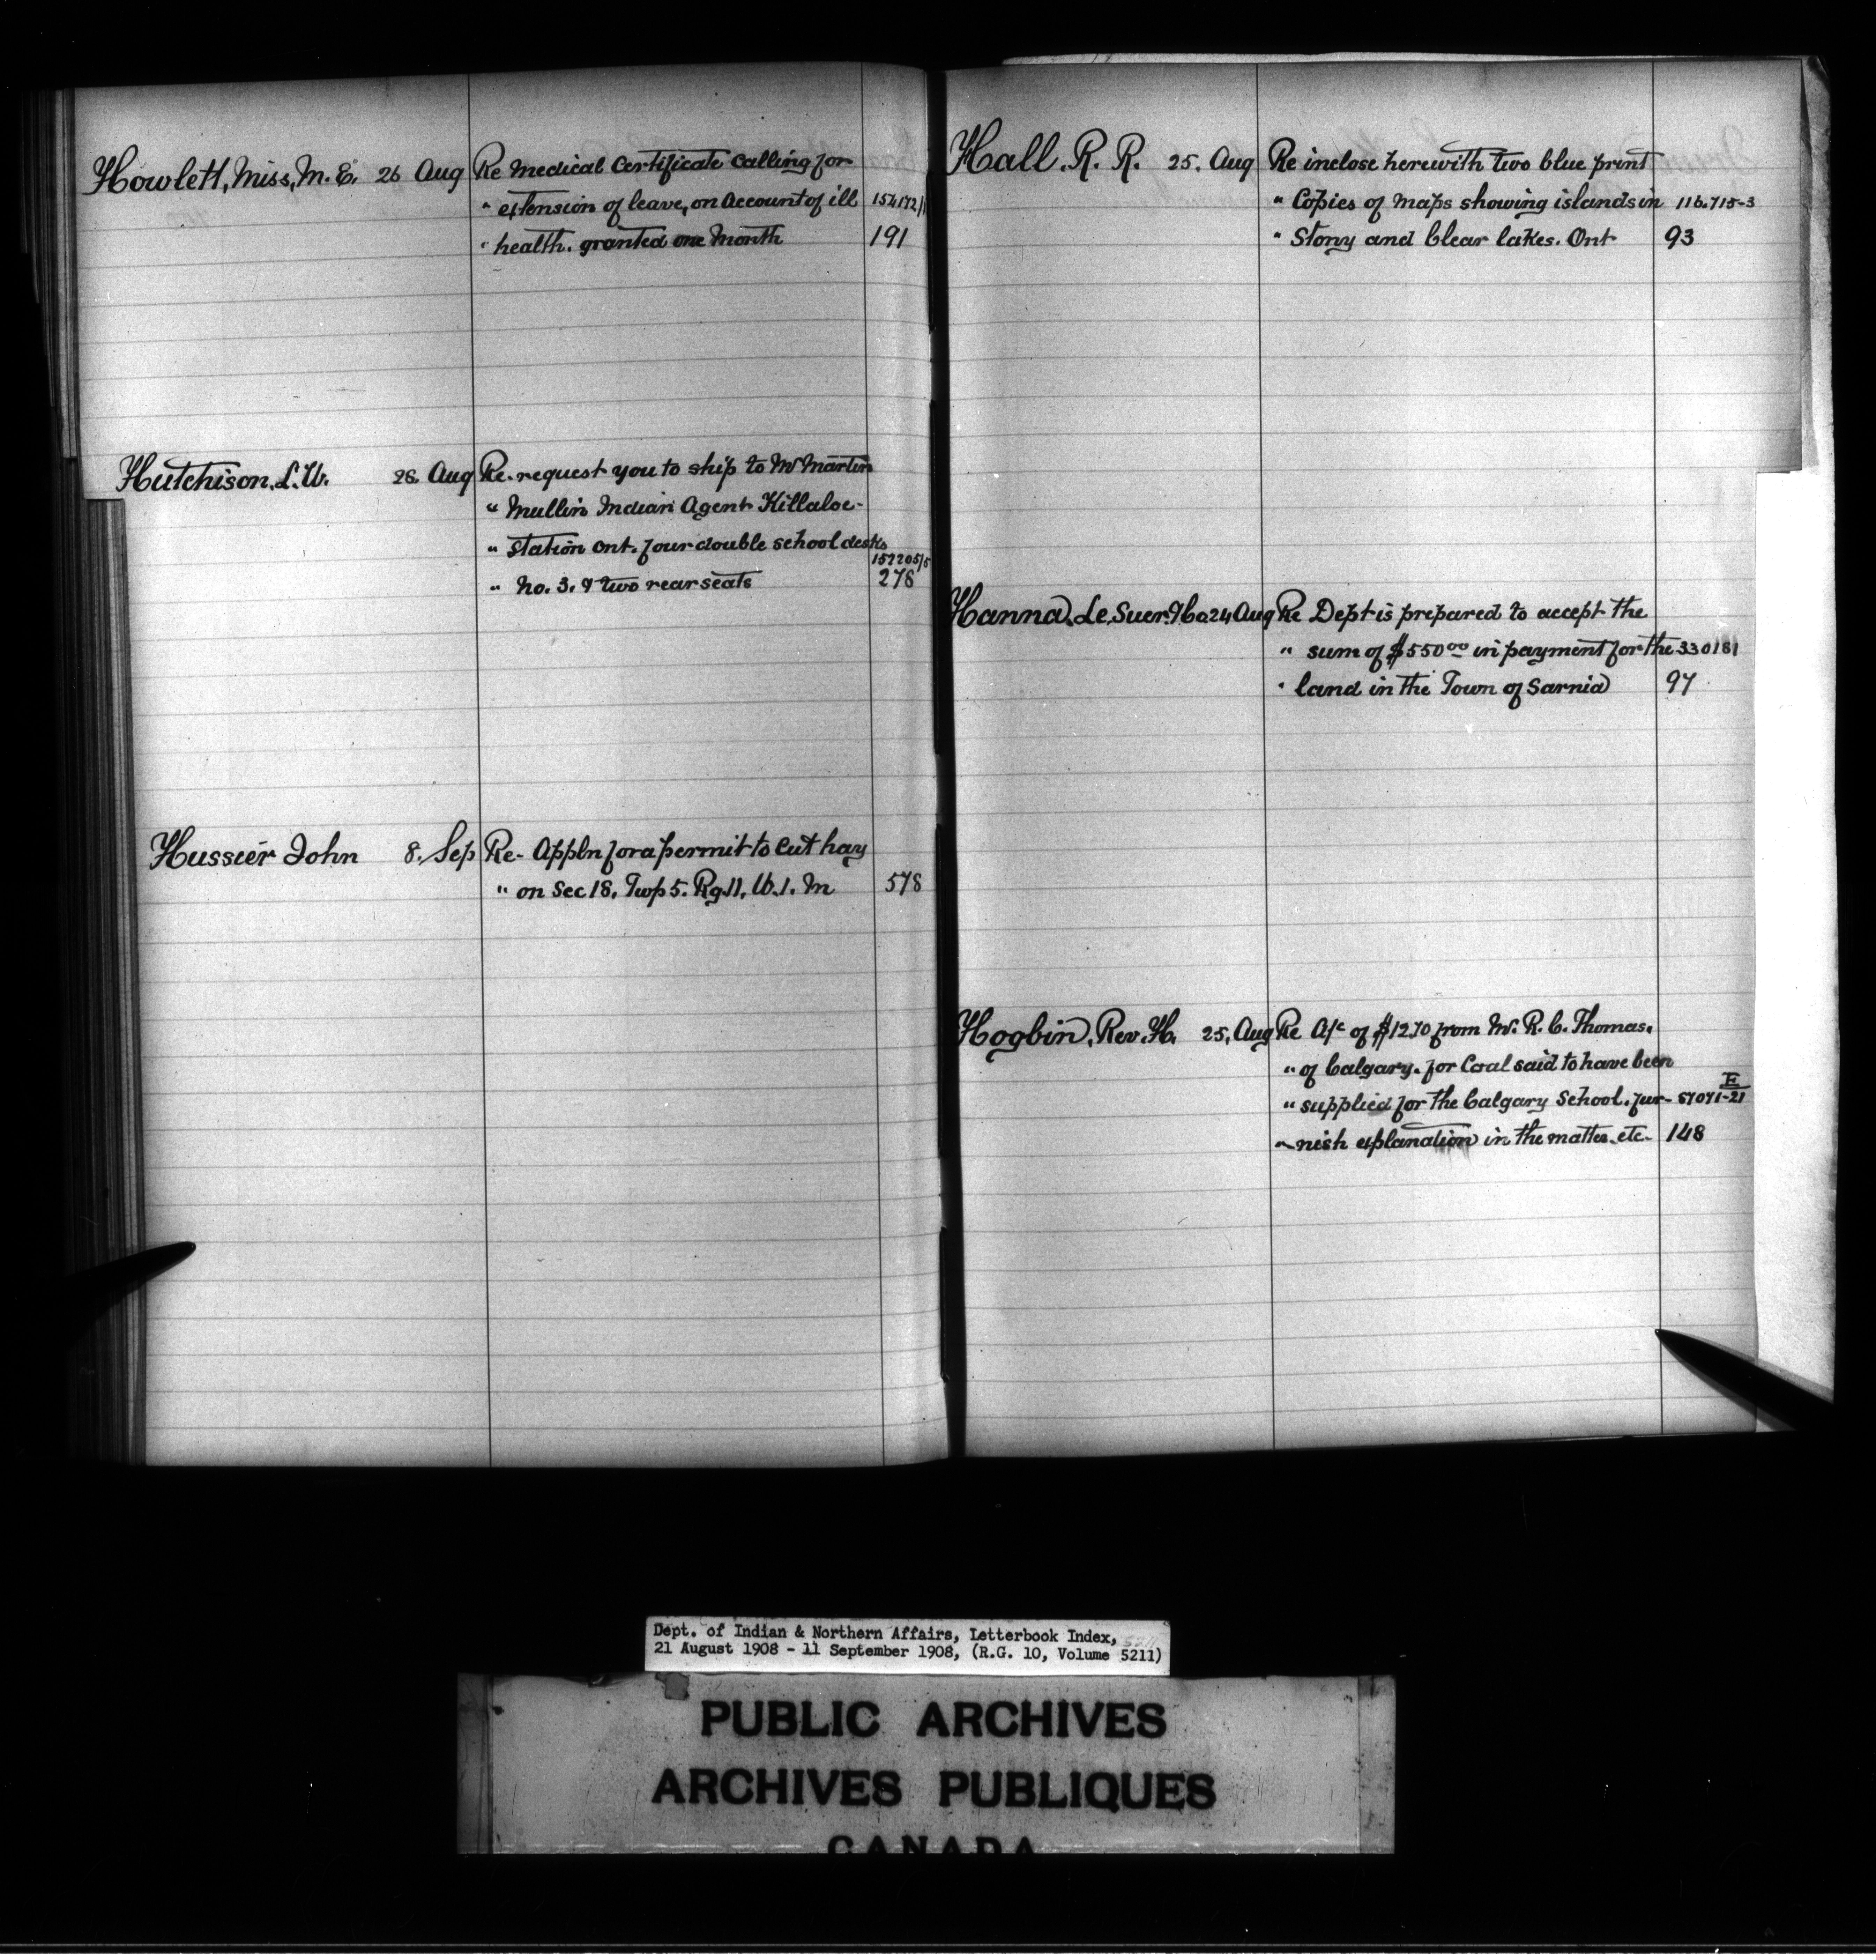 Howlett, Miss, M. E. 26 Aug Re Medical Certificate calling for
" extension of leave, on account of ill 154172/1
" health. granted one month 191
Hutchison, L. W. 28. Aug Re. request you to ship to Mr Martin
" Mullin Indian Agent Killaloe-
" station Ont. four double school desks
157205/5
" No. 3. & two rear seats 278
Hussier John 8. Sep Re- Appln for a permit to cut hay
" on Sec 18, Twp 5. Rg. 11, W. 1. M 578
Hall. R. R. 25. Aug Re inclose herewith two blue print
" Copies of maps showing islands in 116.715-3
" Stony and Clear lakes. Ont 93
Hanna, Le Suer & Co 24 Aug Re Dept is prepared to accept the
" sum of $550 00 in payment for the 330181
" land in the Town of Sarnia 97
Hogbin, Rev. H. 25, Aug Re A/c of $12.70 from Mr. R. C. Thomas.
" of Calgary. for Coal said to have been
" supplied for the Calgary School. fur- 57071-21 E
" nish explanation in the matter. etc. 148
Dept. of Indian & Northern Affairs, Letterbook Index,
21 August 1908 - 11 September 1908, (R.G. 10, Volume 5211)
PUBLIC ARCHIVES
ARCHIVES PUBLIQUES
CANADA